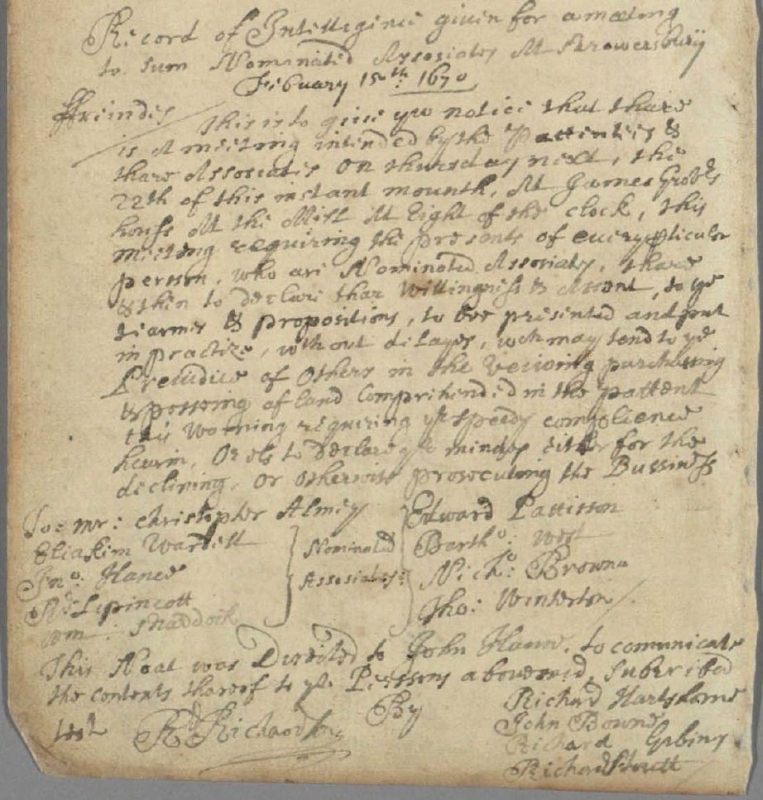 Record of Intelligence given for a meeting
to sum Nominated Assosiates At Shrowersbury
Febuary 15th 1670
ffreindes
This is to give yw notice that thare
is A meeting intended by the Pattentees &
thare Assosiates On thursday next, the
22th of this instant mounth, At James Grovers
house At the Mill At Eight of the clock, this
meeting requiring the presents of every perticular
person, who are Nominated Assosiats, thare
& then to declare thar Willingness & Assent, to ye
tearmes & propositions, to bee presented and put
in practize, without delayes, wch may tend to ye
Prejudice of Others in the veiwing purchasing
& posseing of land Comprihended in the pattent
this Worning requiring yr speedy complience
hearin, Or els to Declare yr mindes either for the
declining, Or Otherwise prosecuting the Bussiness
To mr: Christopher Almey
Eliakim Wardell
Jno: Hance
Rd Lipincott
Wm: Shaddock
Nominated
Assosiates:
Edward Pattisson
Bartho: West
Nicho: Browne
Tho: Winterton
This Noat was Directed to John Hance, to comunicate
the contents thareof to ye Perssons abovesaid, subscribed
By
Richard Hartshorne
John Bowne
Richard Gibins
Richard Stoutt
test Rd Richardson